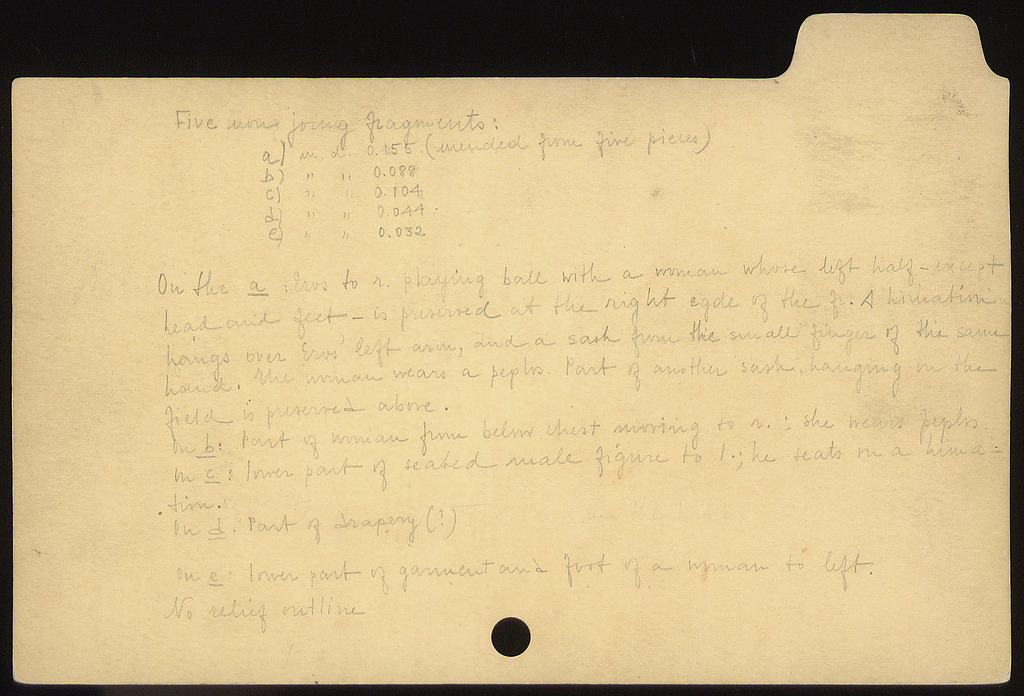 Five non joing fragments:
a) m. d. 0.155 (mended from five pieces)
b) " " 0.088
c) " " 0.104
d) " " 0.044
e) " " 0.032
On the a : Eros to r. playing ball with a woman whose left half - except
head and feet - is preserved at the right egde of the fr. A himation
hangs over Eros' left arm, and a sash from the small finger of the same
hand. The woman wears a peplos. Part of another sash, hanging in the
field is preserved above.
On b: Part of woman from below chest moving to r. : she wears peplos.
On c : lower part of seated male figure to l.; he seats on a hima-
tion.
On d. Part of drapery (?)
On e: lower part of garment and foot of a woman to left.
No relief outline